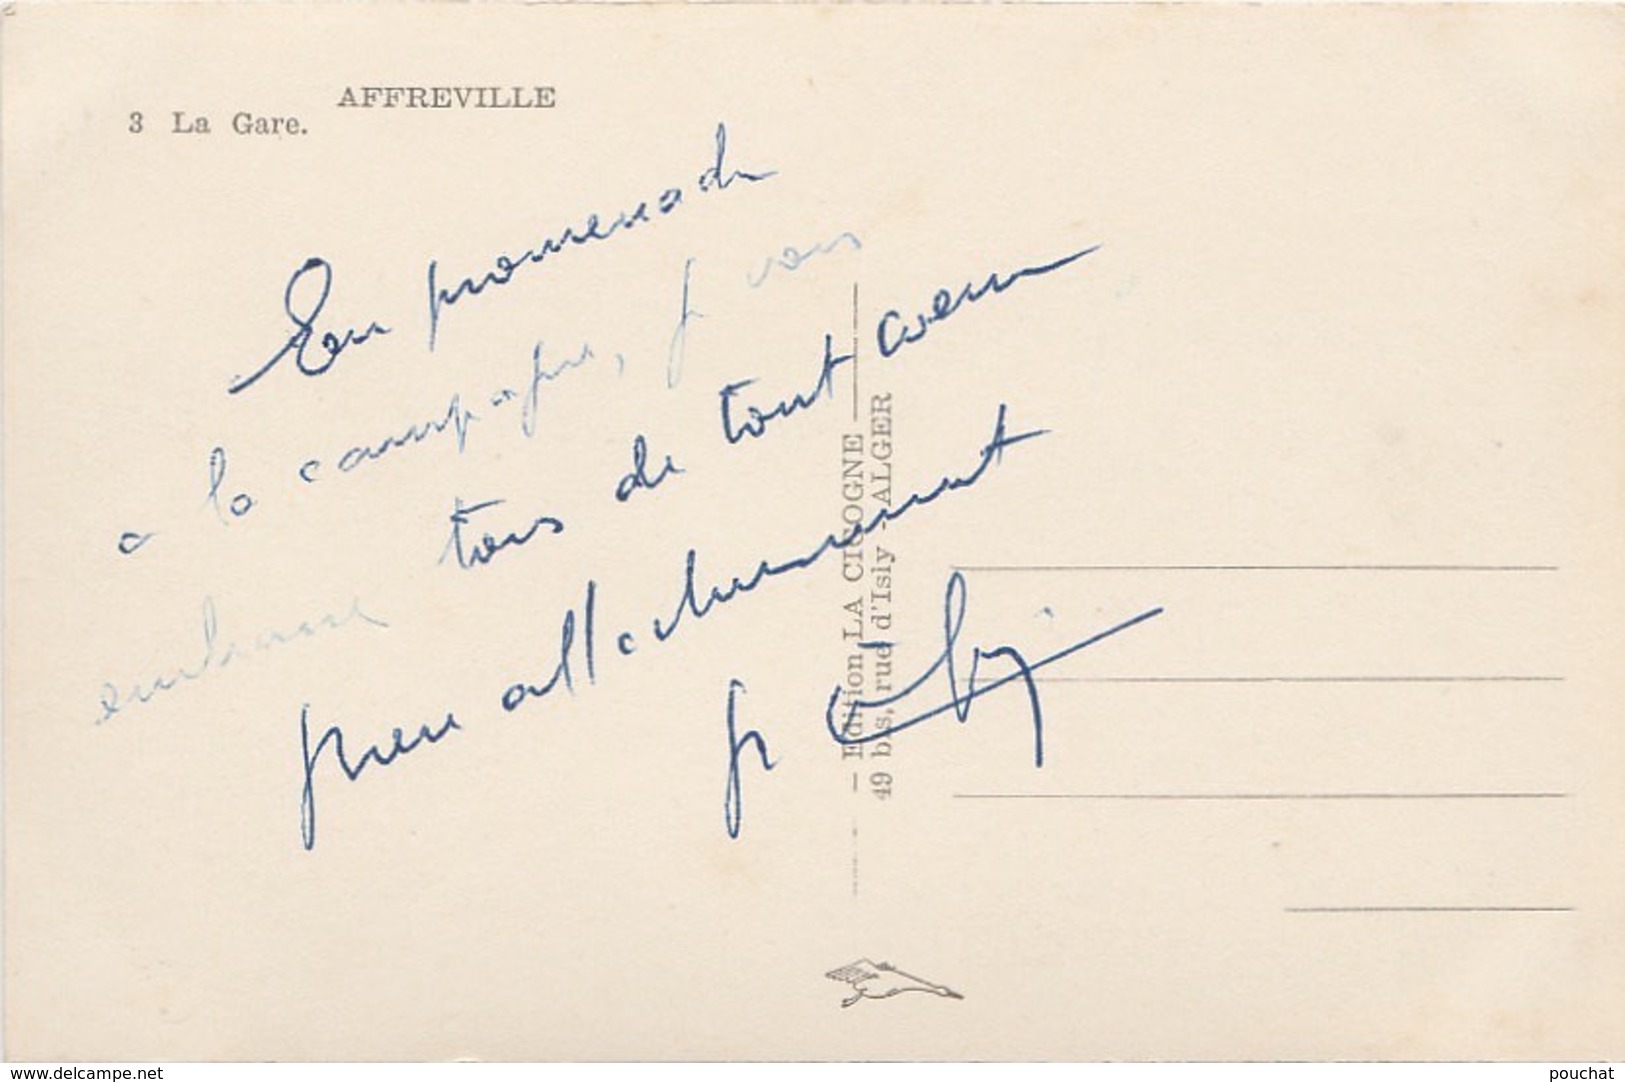 AFFREVILLE
3 La Gare.
En promenade
à la campagne, je vous
embrasse tous de tout coeur
bien affectueusement
Edition LA CICOGNE
49 bis, rue d'Isly - ALGER
www.delcampe.net
pouchat